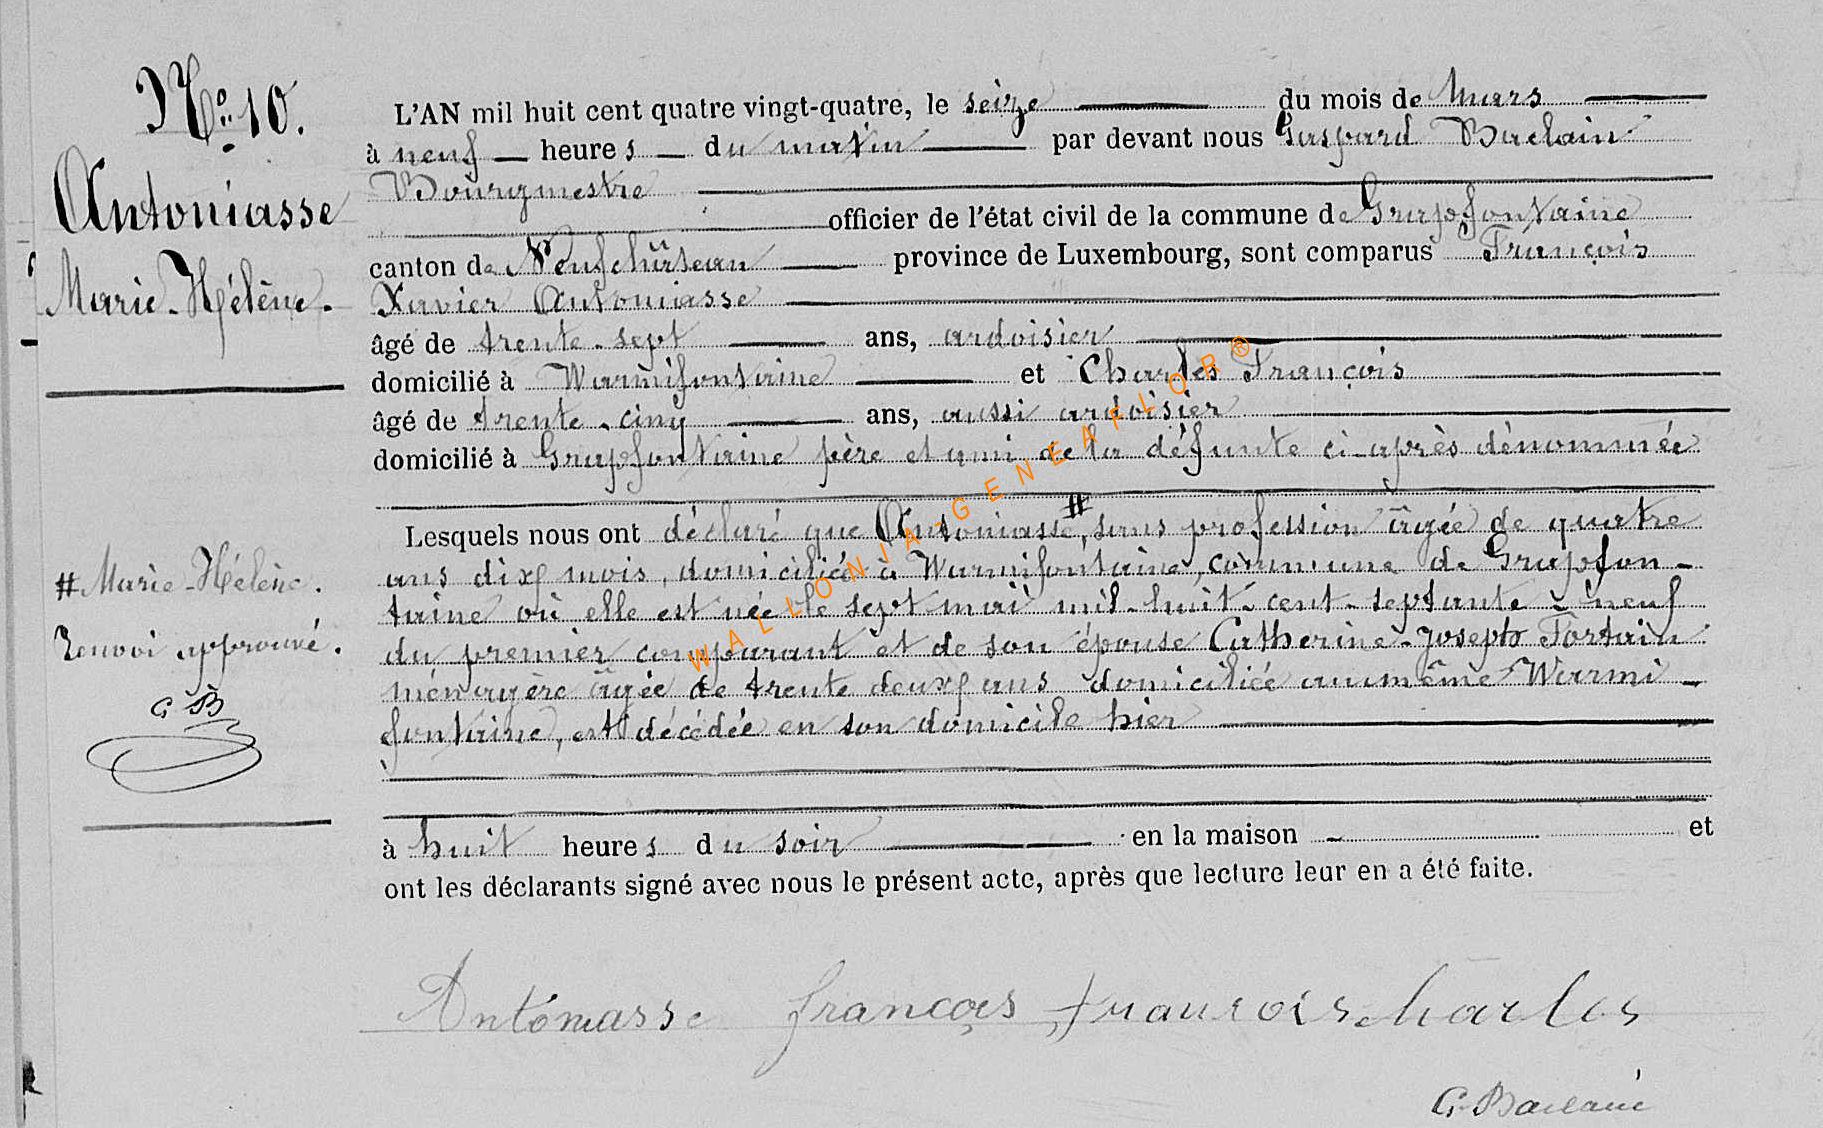 No. 10.
Antoniasse
Marie-Hélène.
L'AN mil huit cent quatre vingt-quatre, le seize du mois de Mars
à neuf heures du matin par devant nous Gaspard Baclain
Bourgmestre
officier de l'état civil de la commune de Grapfontaine
canton de Neufchâteau province de Luxembourg, sont comparus François
Xavier Antoniasse
âgé de trente-sept ans, ardoisier
domicilié à Warmifontaine et Charles François
âgé de trente-cinq ans, aussi ardoisier
domicilié à Grapfontaine père et ami de la défunte ci-après dénommée
Lesquels nous ont déclaré que Antoniasse #, sans profession âgée de quatre
ans dix mois, domiciliée à Warmifontaine, commune de Grapfon-
taine où elle est née le sept mai mil-huit-cent-septante-neuf
du premier comparant et de son épouse Catherine-Joseph Tortain
ménagère âgée de trente deux ans domiciliée au même Warmi-
fontaine, est décédée en son domicile hier
à huit heures du soir en la maison et
ont les déclarants signé avec nous le présent acte, après que lecture leur en a été faite.
# Marie-Hélène.
Renvoi approuvé.
G B
Antoniasse françois françois charles
G. Baclain
WALLONIA-GENEAFLOR®